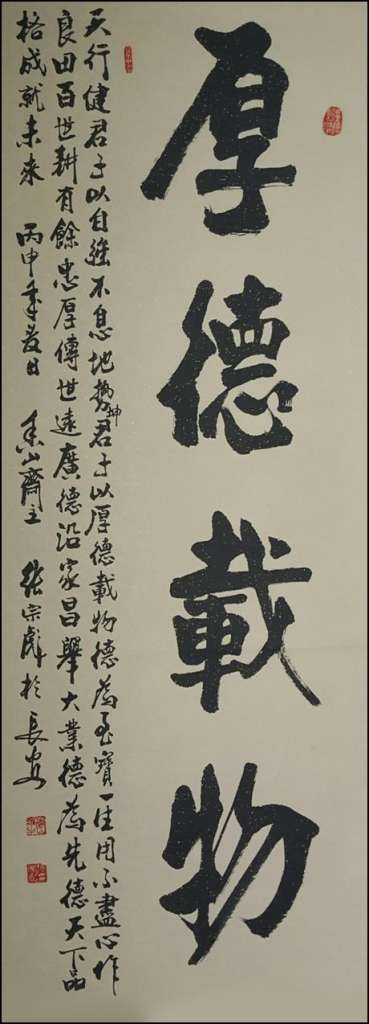 厚德載物
天行健君子以自強不息地勢坤君子以厚德載物德為至寶一生用不盡心作
良田百世耕有餘忠厚傳世遠廣德沿家昌舉大業德為先德天下品
格成就未來 丙申年夏日 香山齋主 張宗彪於長安